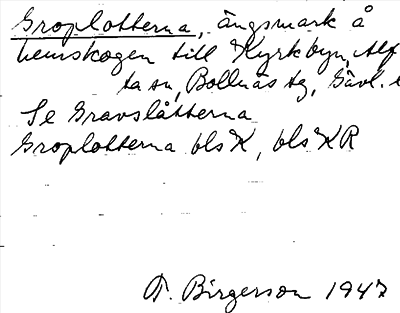 Groplotterna, ängsmark å
hemskogen till Kyrkbyn, Alf
ta sn, Bollnäs tg, Gävl.
Se Gravslåtterna
Groplotterna bls K, bls KR
T. Birgerson 1947